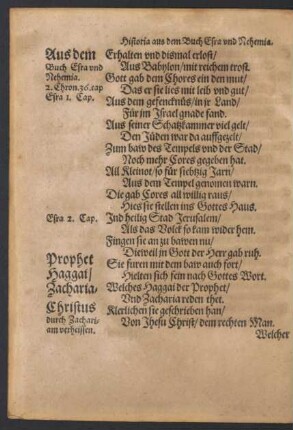 Historia aus dem Buch Esra vnd Nehemia.
Aus dem
Buch Esra vnd
Nehemia.
2. Chron. 36. cap
Esra 1. Cap.
Erhalten vnd dismal erlost/
Aus Babylon/ mit reichem trost.
Gott gab dem Chores ein den mut/
Das er sie lies mit leib vnd gut/
Aus dem gefencknüs/ in jr Land/
Für im Israel gnade fand.
Aus seiner Schatzkammer viel gelt/
Den Jüden war da auffgezelt/
Zum baw des Tempels vnd der Stad/
Noch mehr Cores gegeben hat.
All Kleinot/ so für siebtzig Jarn/
Aus dem Tempel genomen warn.
Die gab Cores all willig raus/
Hies sie stellen ins Gottes Haus.
Esra 2. Cap.
Ind heilig Stad Jerusalem/
Als das Volck so kam wider hem.
Fingen sie an zu bawen nu/
Dieweil jn Gott der Herr gab ruh.
Prophet
Haggai/
Zacharia/
Sie furen mit dem baw auch fort/
Hielten sich fein nach Gottes Wort.
Welches Haggai der Prophet/
Vnd Zacharia reden thet.
Christus
durch Zachari-
am verheissen.
Klerlichen sie geschrieben han/
Von Jhesu Christ/ dem rechten Man.
Welcher